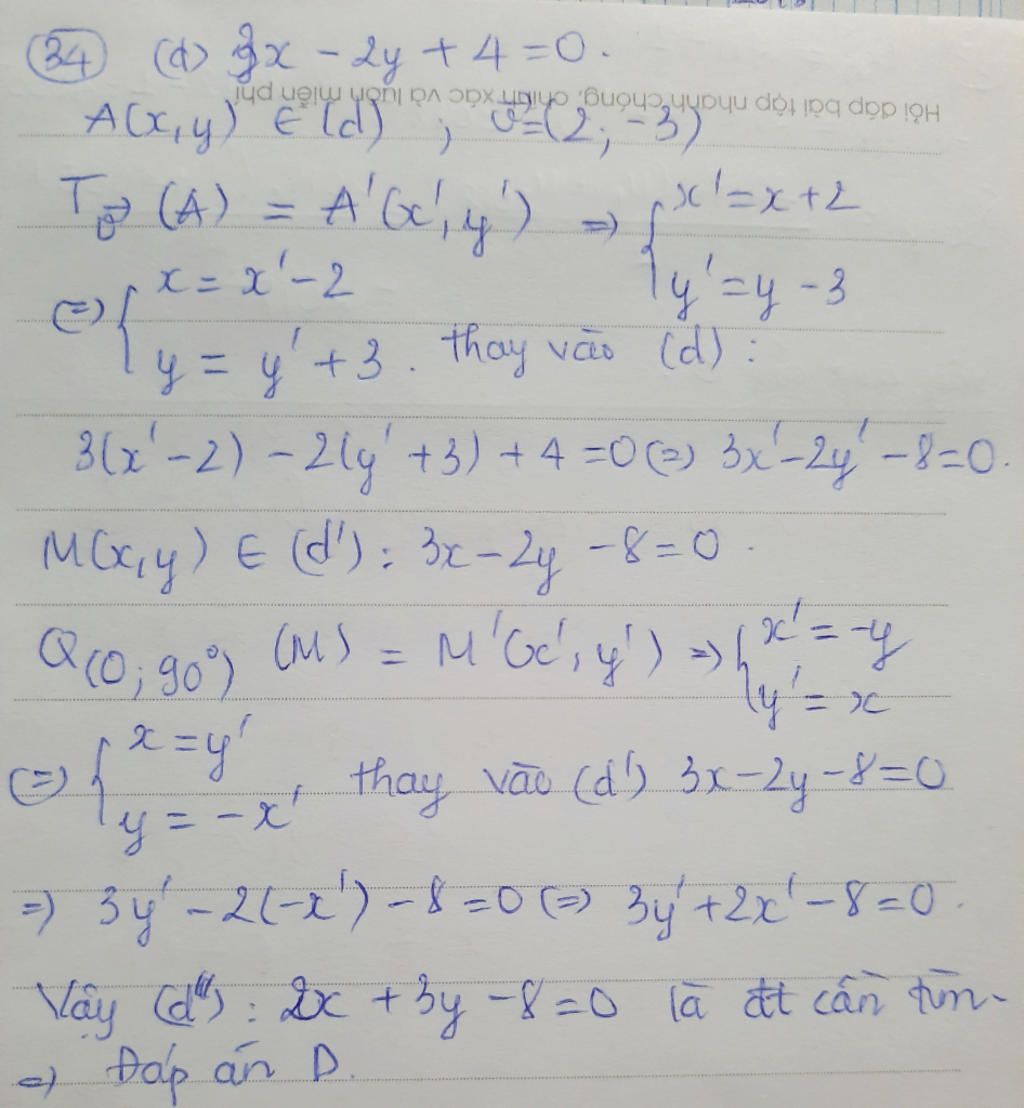 34 (d) 3x - 2y + 4 = 0.
Hỏi đáp bài tập nhanh chóng, chính xác và luôn miễn phí
A(x,y) ∈ (d) ; v⃗=(2; -3)
T_v⃗ (A) = A'(x', y') => { x' = x + 2
y' = y - 3
(=) { x = x' - 2
y = y' + 3. thay vào (d) :
3(x' - 2) - 2(y' + 3) + 4 = 0 (=) 3x' - 2y' - 8 = 0.
M(x,y) ∈ (d') : 3x - 2y - 8 = 0.
Q(O; 90°) (M) = M'(x', y') => { x' = -y
y' = x
(=) { x = y'
y = -x', thay vào (d') 3x - 2y - 8 = 0
=) 3y' - 2(-x') - 8 = 0 (=) 3y' + 2x' - 8 = 0.
Vậy (d") : 2x + 3y - 8 = 0 là đt cần tìm.
=) Đáp án D.